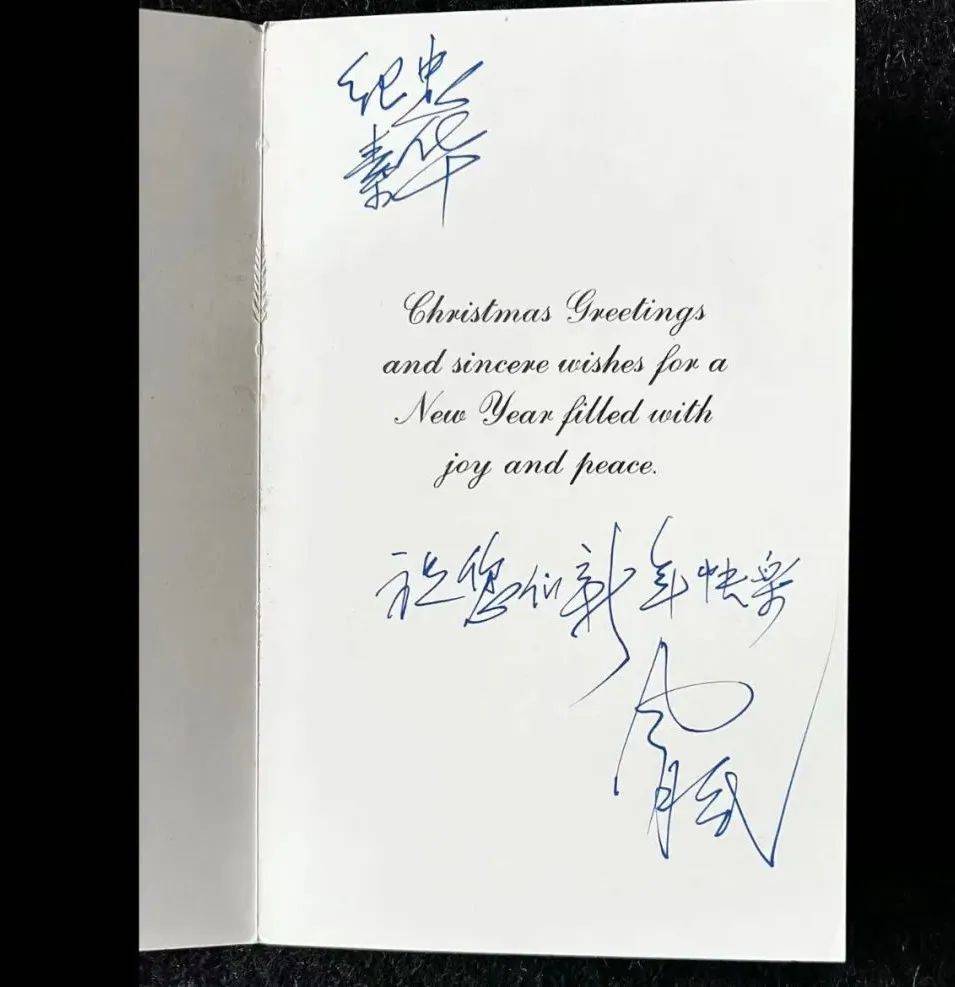 纪忠
秦华
Christmas Greetings
and sincere wishes for a
New Year filled with
joy and peace.
祝您们新年快乐